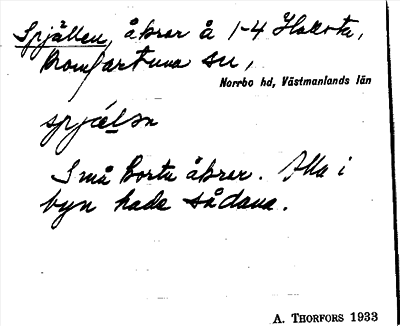 Spjällen, åkrar å 1-4 Hallsta,
Romfartuna sn,
Norrbo hd, Västmanlands län
spjäl̲ən
Små korta åkrar. Alla i
byn hade sådana.
A. THORFORS 1933